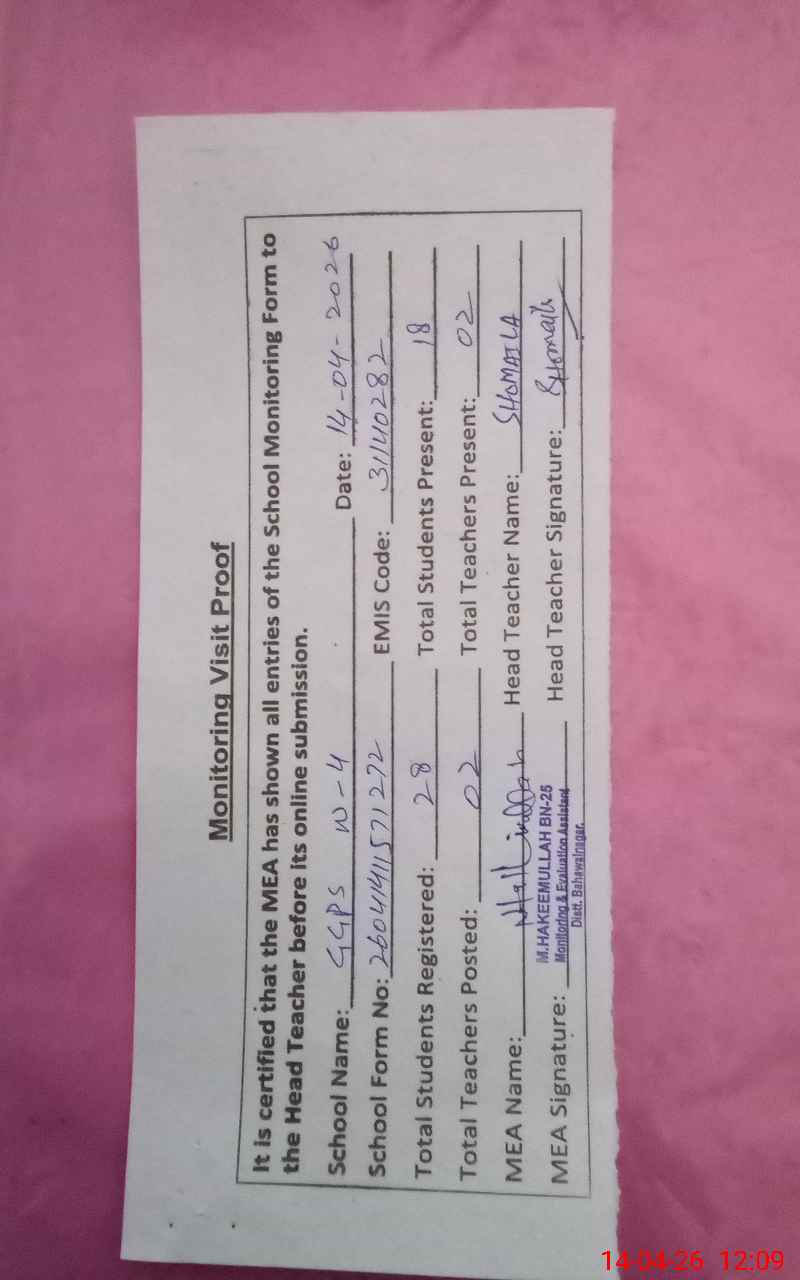 Monitoring Visit Proof
It is certified that the MEA has shown all entries of the School Monitoring Form to
the Head Teacher before its online submission.
School Name: GGPS W-4 Date: 14-04-2026
School Form No: 26041411571272 EMIS Code: 31140282
Total Students Registered: 28 Total Students Present: 18
Total Teachers Posted: 02 Total Teachers Present: 02
MEA Name: Head Teacher Name: SHOMAILA
M.HAKEEMULLAH BN-25
Monitoring & Evaluation Assistant
Distt. Bahawalnagar.
MEA Signature: Head Teacher Signature: SHomaila
14-04-26 12:09